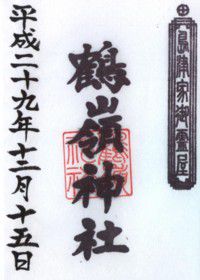 島津家御霊屋
鶴嶺神社
平成二十九年十二月十五日